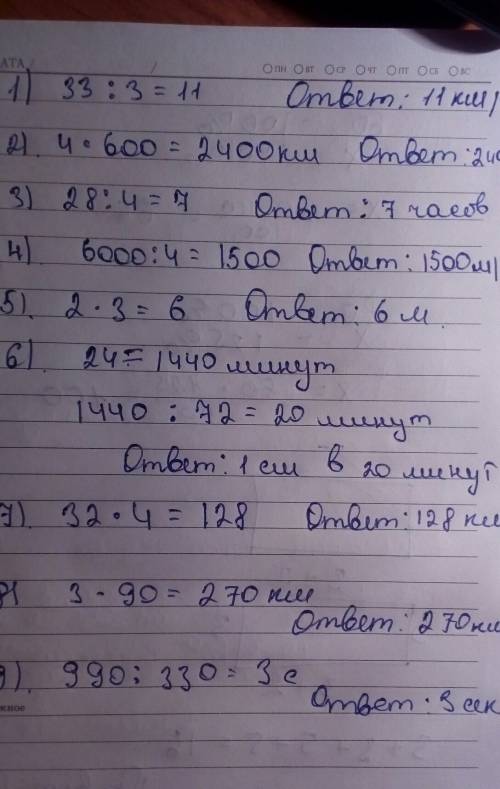 АТА / /
ПН ВТ СР ЧТ ПТ СБ ВС
1) 33 : 3 = 11 Ответ: 11 км/
2). 4 · 600 = 2400км Ответ: 240
3) 28 : 4 = 7 Ответ: 7 часов
4) 6000 : 4 = 1500 Ответ: 1500м/
5). 2 · 3 = 6 Ответ: 6 м.
6). 24 = 1440 минут
1440 : 72 = 20 минут
Ответ: 1 см в 20 минут
7). 32 · 4 = 128 Ответ: 128 км
8) 3 · 90 = 270 км
Ответ: 270км
9). 990 : 330 = 3 с
жное Ответ: 3 сек